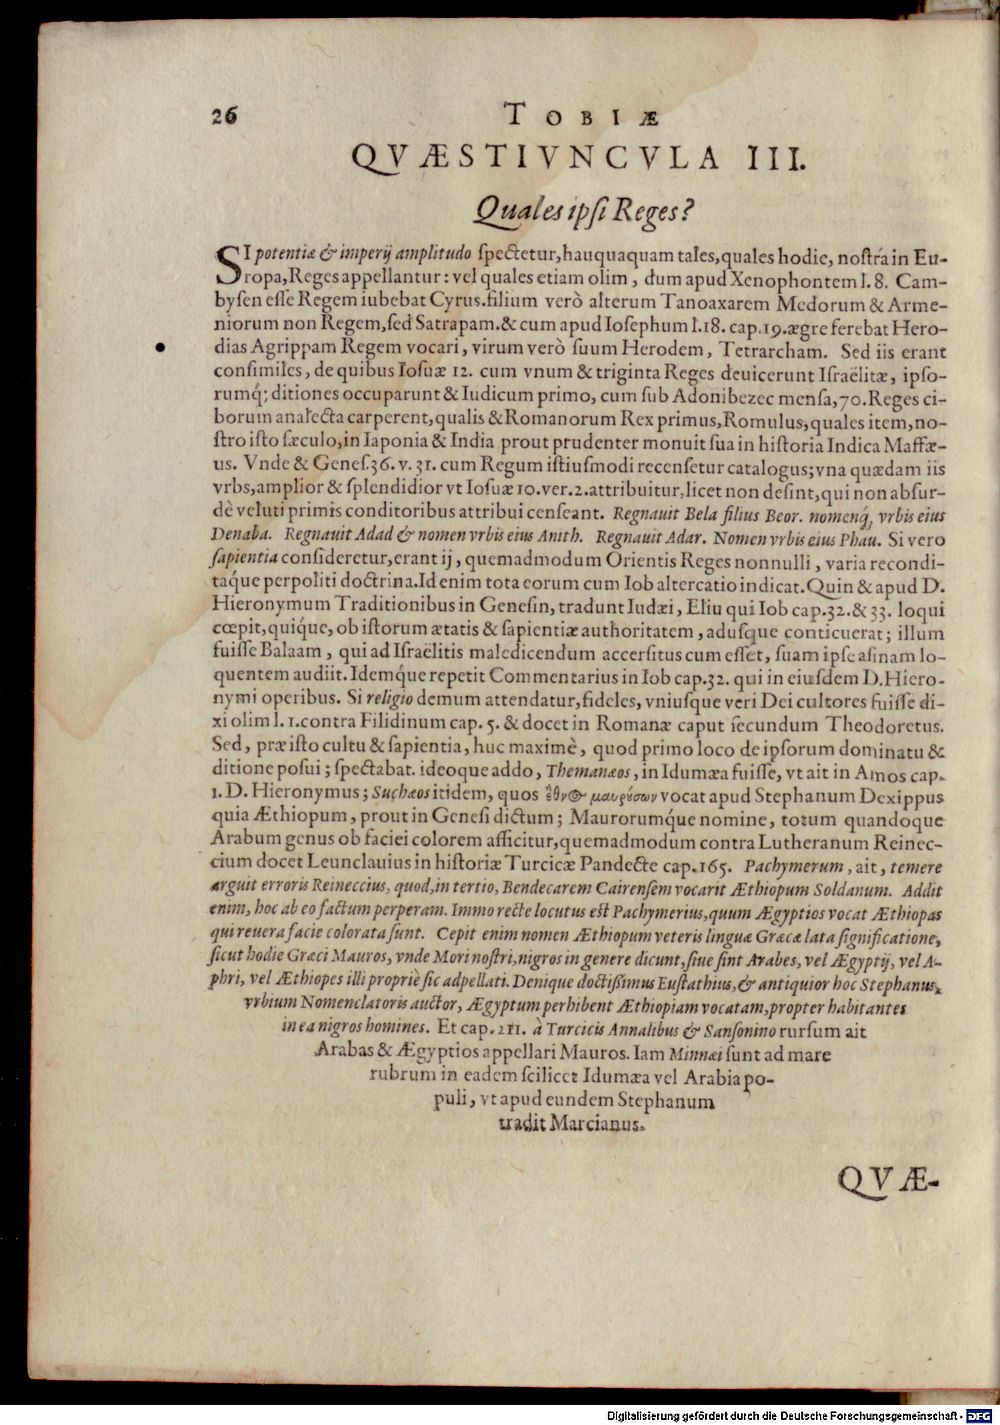 26
TOBIÆ
QVÆSTIVNCVLA III.
Quales ipſi Reges?
SI potentiæ & imperij amplitudo ſpectetur, hauquaquam tales, quales hodie, noſtrá in Eu-
ropa, Reges appellantur: vel quales etiam olim, dum apud Xenophontem l. 8. Cam-
byſen eſſe Regem iubebat Cyrus. filium verò alterum Tanoaxarem Medorum & Arme-
niorum non Regem, ſed Satrapam. & cum apud Ioſephum l. 18. cap. 19. ægre ferebat Hero-
dias Agrippam Regem vocari, virum verò ſuum Herodem, Tetrarcham. Sed iis erant
conſimiles, de quibus Ioſuæ 12. cum vnum & triginta Reges deuicerunt Iſraëlitæ, ipſo-
rumq́; ditiones occuparunt & Iudicum primo, cum ſub Adonibezec menſa, 70. Reges ci-
borum analecta carperent, qualis & Romanorum Rex primus, Romulus, quales item, no-
ſtro iſto ſæculo, in Iaponia & India prout prudenter monuit ſua in hiſtoria Indica Maffæ-
us. Vnde & Geneſ. 36. v. 31. cum Regum iſtiuſmodi recenſetur catalogus; vna quædam iis
vrbs, amplior & ſplendidior vt Ioſuæ 10. ver. 2. attribuitur, licet non deſint, qui non abſur-
dè veluti primis conditoribus attribui cenſeant. Regnauit Bela filius Beor. nomenq́, vrbis eius
Denaba. Regnauit Adad & nomen vrbis eius Anith. Regnauit Adar. Nomen vrbis eius Phau. Si vero
ſapientia conſideretur, erant ij, quemadmodum Orientis Reges nonnulli, varia recondi-
taq́ue perpoliti doctrina. Id enim tota eorum cum Iob altercatio indicat. Quin & apud D.
Hieronymum Traditionibus in Geneſin, tradunt Iudæi, Eliu qui Iob cap. 32. & 33. loqui
cœpit, quiq́ue, ob iſtorum ætatis & ſapientiæ authoritatem, aduſque conticuerat; illum
fuiſſe Balaam, qui ad Iſraëlitis maledicendum accerſitus cum eſſet, ſuam ipſe aſinam lo-
quentem audiit. Idemq́ue repetit Commentarius in Iob cap. 32. qui in eiuſdem D. Hiero-
nymi operibus. Si religio demum attendatur, fideles, vniuſque veri Dei cultores fuiſſe di-
xi olim l. 1. contra Filidinum cap. 5. & docet in Romanæ caput ſecundum Theodoretus.
Sed, præ iſto cultu & ſapientia, huc maximè, quod primo loco de ipſorum dominatu &
ditione poſui; ſpectabat. ideoque addo, Themanæos, in Idumæa fuiſſe, vt ait in Amos cap.
1. D. Hieronymus; Suchæos itidem, quos μαυρούσων vocat apud Stephanum Dexippus
quia Æthiopum, prout in Geneſi dictum; Maurorumq́ue nomine, totum quandoque
Arabum genus ob faciei colorem afficitur, quemadmodum contra Lutheranum Reinec-
cium docet Leunclauius in hiſtoriæ Turcicæ Pandecte cap. 165. Pachymerum, ait, temere
arguit erroris Reineccius, quod, in tertio, Bendecarem Cairenſem vocarit Æthiopum Soldanum. Addit
enim, hoc ab eo factum perperam. Immo recte locutus eſt Pachymerius, quum Ægyptios vocat Æthiopas
qui reuera facie colorata ſunt. Cepit enim nomen Æthiopum veteris linguæ Græcæ lata ſignificatione,
ſicut hodie Græci Mauros, vnde Mori noſtri, nigros in genere dicunt, ſiue ſint Arabes, vel Ægyptij, vel A-
phri, vel Æthiopes illi propriè ſic adpellati. Denique doctiſſimus Euſtathius, & antiquior hoc Stephanus,
vrbium Nomenclatoris auctor, Ægyptum perhibent Æthiopiam vocatam, propter habitantes
in ea nigros homines. Et cap. 211. à Turcicis Annalibus & Sanſonino rurſum ait
Arabas & Ægyptios appellari Mauros. Iam Minnæi ſunt ad mare
rubrum in eadem ſcilicet Idumæa vel Arabia po-
puli, vt apud eundem Stephanum
tradit Marcianus.
QVÆ-
Digitalisierung gefördert durch die Deutsche Forschungsgemeinschaft - DFG